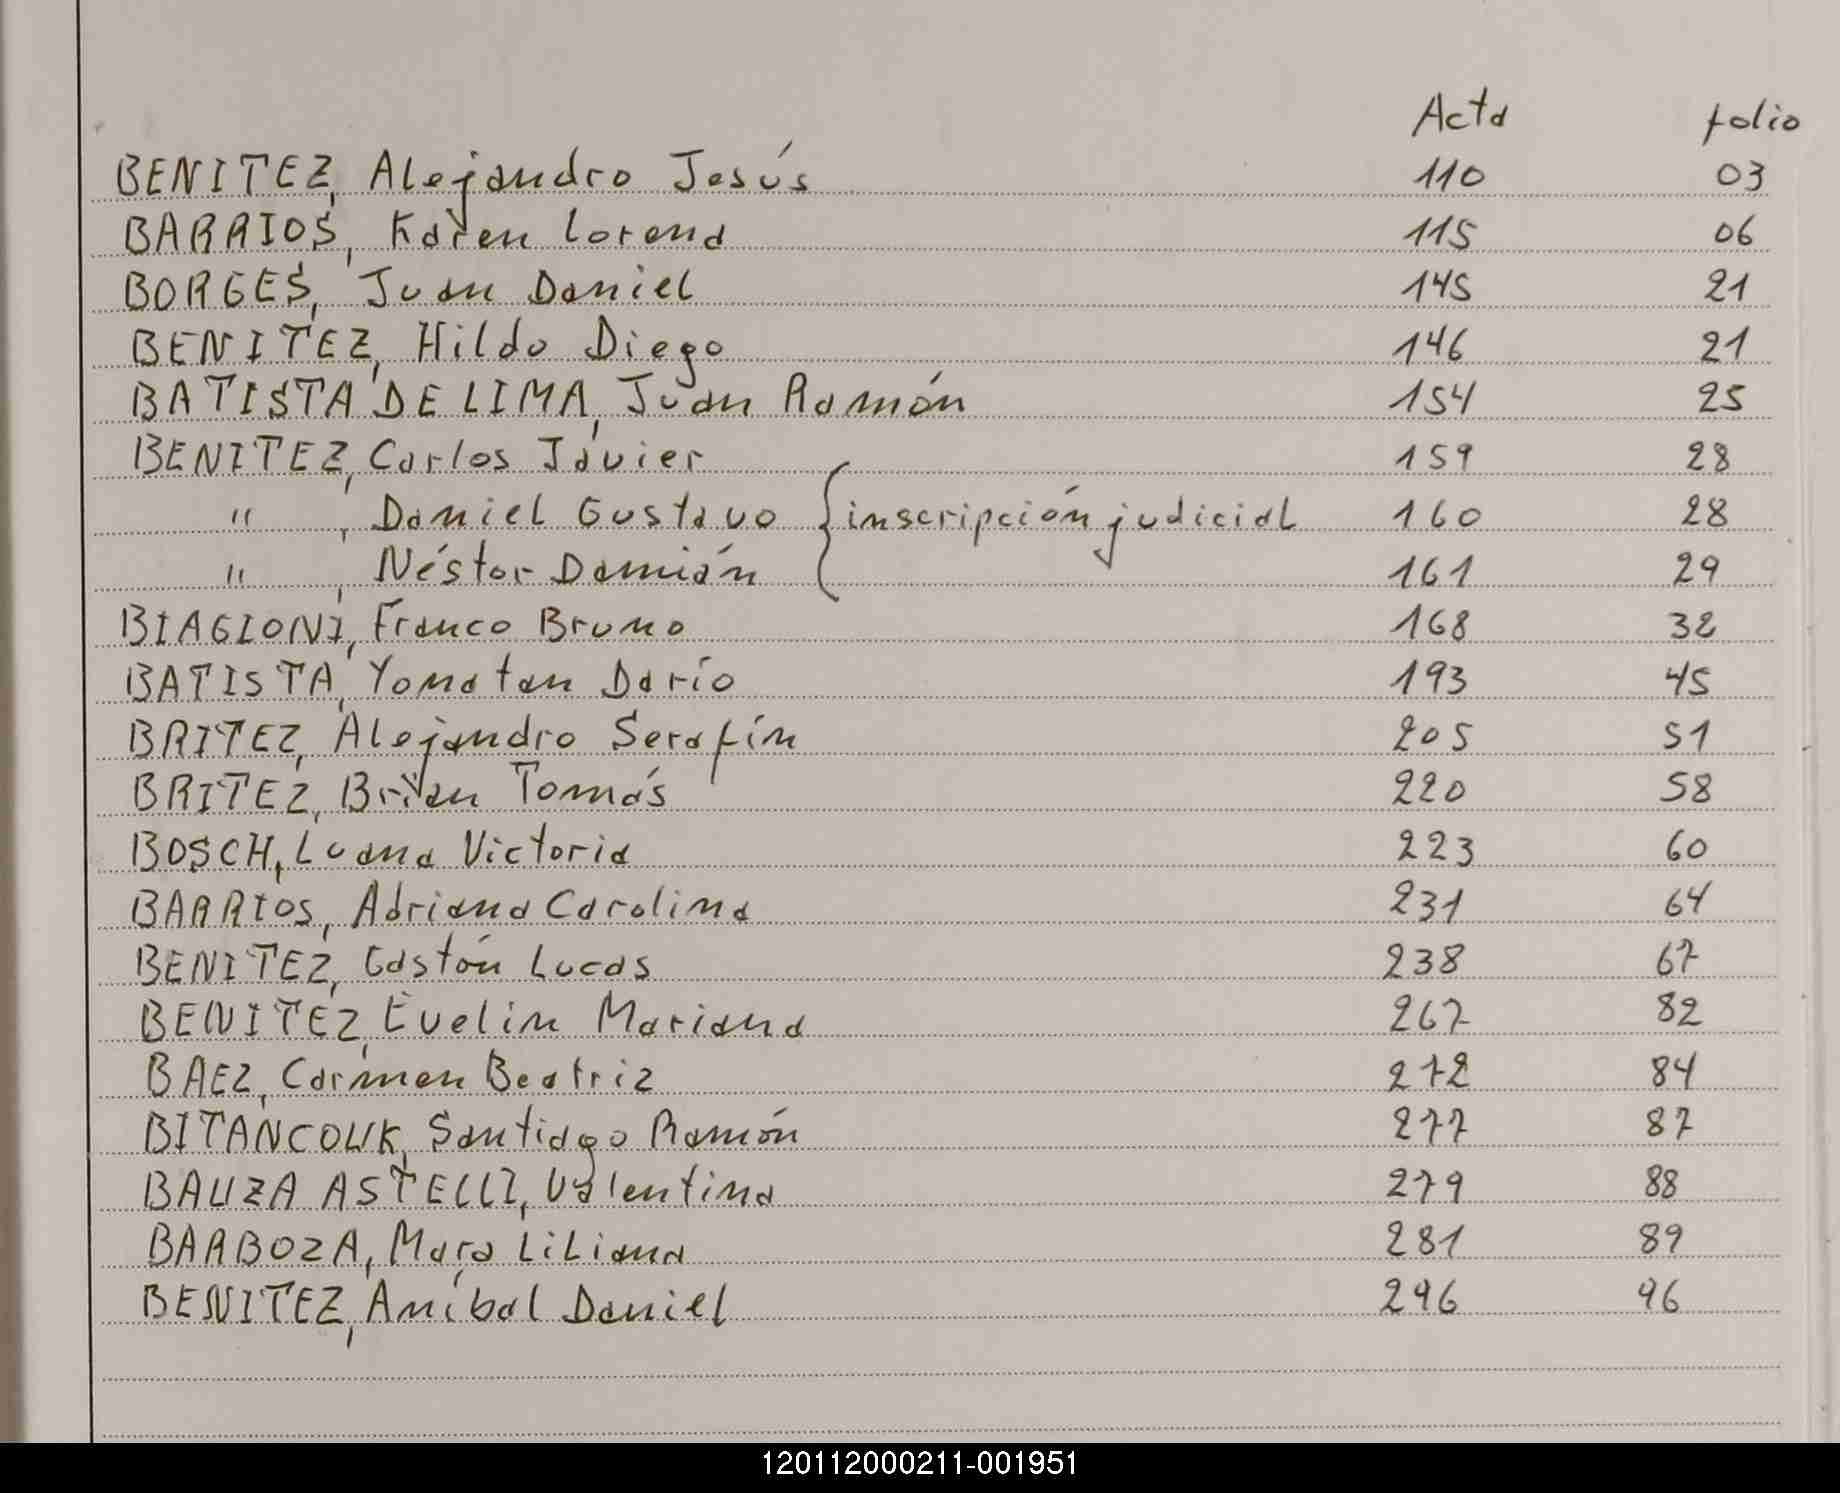 Acta folio
BENITEZ, Alejandro Jesús 110 03
BARRIOS, Karen Lorena 115 06
BORGES, Juan Daniel 145 21
BENITEZ, Hildo Diego 146 21
BATISTA DE LIMA, Juan Ramón 154 25
BENITEZ, Carlos Javier 159 28
" , Daniel Gustavo { inscripción judicial 160 28
" , Néstor Damián 161 29
BIAGIONI, Franco Bruno 168 32
BATISTA, Yonatan Darío 193 45
BRITEZ, Alejandro Serafín 205 51
BRITEZ, Brian Tomás 220 58
BOSCH, Luana Victoria 223 60
BARRIOS, Adriana Carolina 231 64
BENITEZ, Gastón Lucas 238 67
BENITEZ, Evelin Mariana 267 82
BAEZ, Carmen Beatriz 272 84
BITANCOUR, Santiago Ramón 277 87
BAUZA ASTELLI, Valentina 279 88
BARBOZA, Mara Liliana 281 89
BENITEZ, Aníbal Daniel 296 96
120112000211-001951